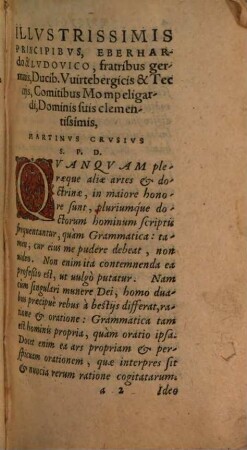 ILLVSTRISSIMIS
PRINCIPIBVS, EBERHAR-
do & LVDOVICO, fratribus ger
manis, Ducib. Vuirtebergicis & Tec
cijs, Comitibus Mompeligar-
di, Dominis suis clemen-
tissimis,
MARTINVS CRVSIVS
S. P. D.
QVANQVAM ple-
ræque aliæ artes &
doctrinæ, in maiore hono-
re sunt, pluriumque do-
ctorum hominum scriptis
frequentantur, quàm Grammatica: ta-
men, cur eius me pudere debeat, non
uideo. Non enim ita contemnenda ea
professio est, ut uulgò putatur. Nam
cum singulari munere Dei, homo dua
bus præcipuè rebus à bestijs differat, ra-
tione & oratione: Grammatica tam
est hominis propria, quàm oratio ipsa.
Docet enim ea ars propriam & per-
spicuam orationem, quæ interpres sit
& nuncia rerum ratione cogitatarum.
a 2 Ideo